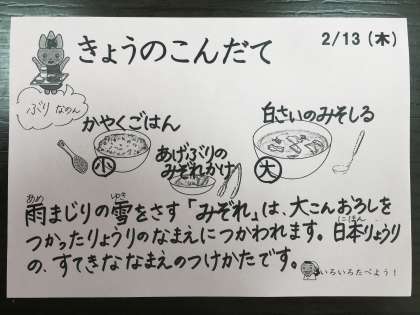 きょうのこんだて
2/13（木）
ぶり なのん
かやくごはん
小
あげぶりの
みぞれかけ
白さいのみそしる
大
雨まじりの雪をさす「みぞれ」は、大こんおろしを
つかったりょうりのなまえにつかわれます。日本りょうり
の、すてきななまえのつけかたです。
いろいろたべよう！